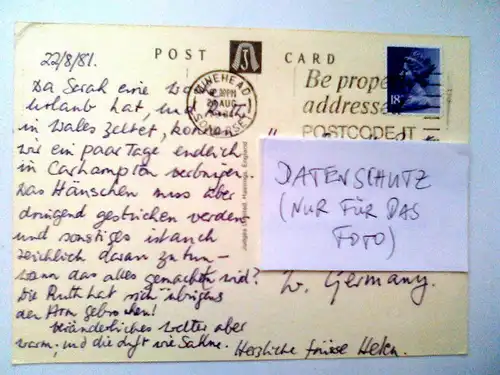 22/8/81.
POST CARD
Da Sarah eine Wo
urlaub hat, und
in Wales zeltet, konnten
wir ein paar Tage endlich
in Carhampton verbringen.
Das Häuschen muss aber
dringend gestrichen werden
und sonstiges ist auch
reichlich daran zu tun –
wann das alles gemacht wird?
Die Ruth hat sich übrigens
den Arm gebrochen!
veränderliches Wetter aber
warm, und die Luft wie Sahne.
Herzliche Grüsse Helen.
MINEHEAD
AUG
SOMERSET
Be prope
addresse
POSTCODE IT
18
DATENSCHUTZ
(NUR FÜR DAS
FOTO)
W. Germany.